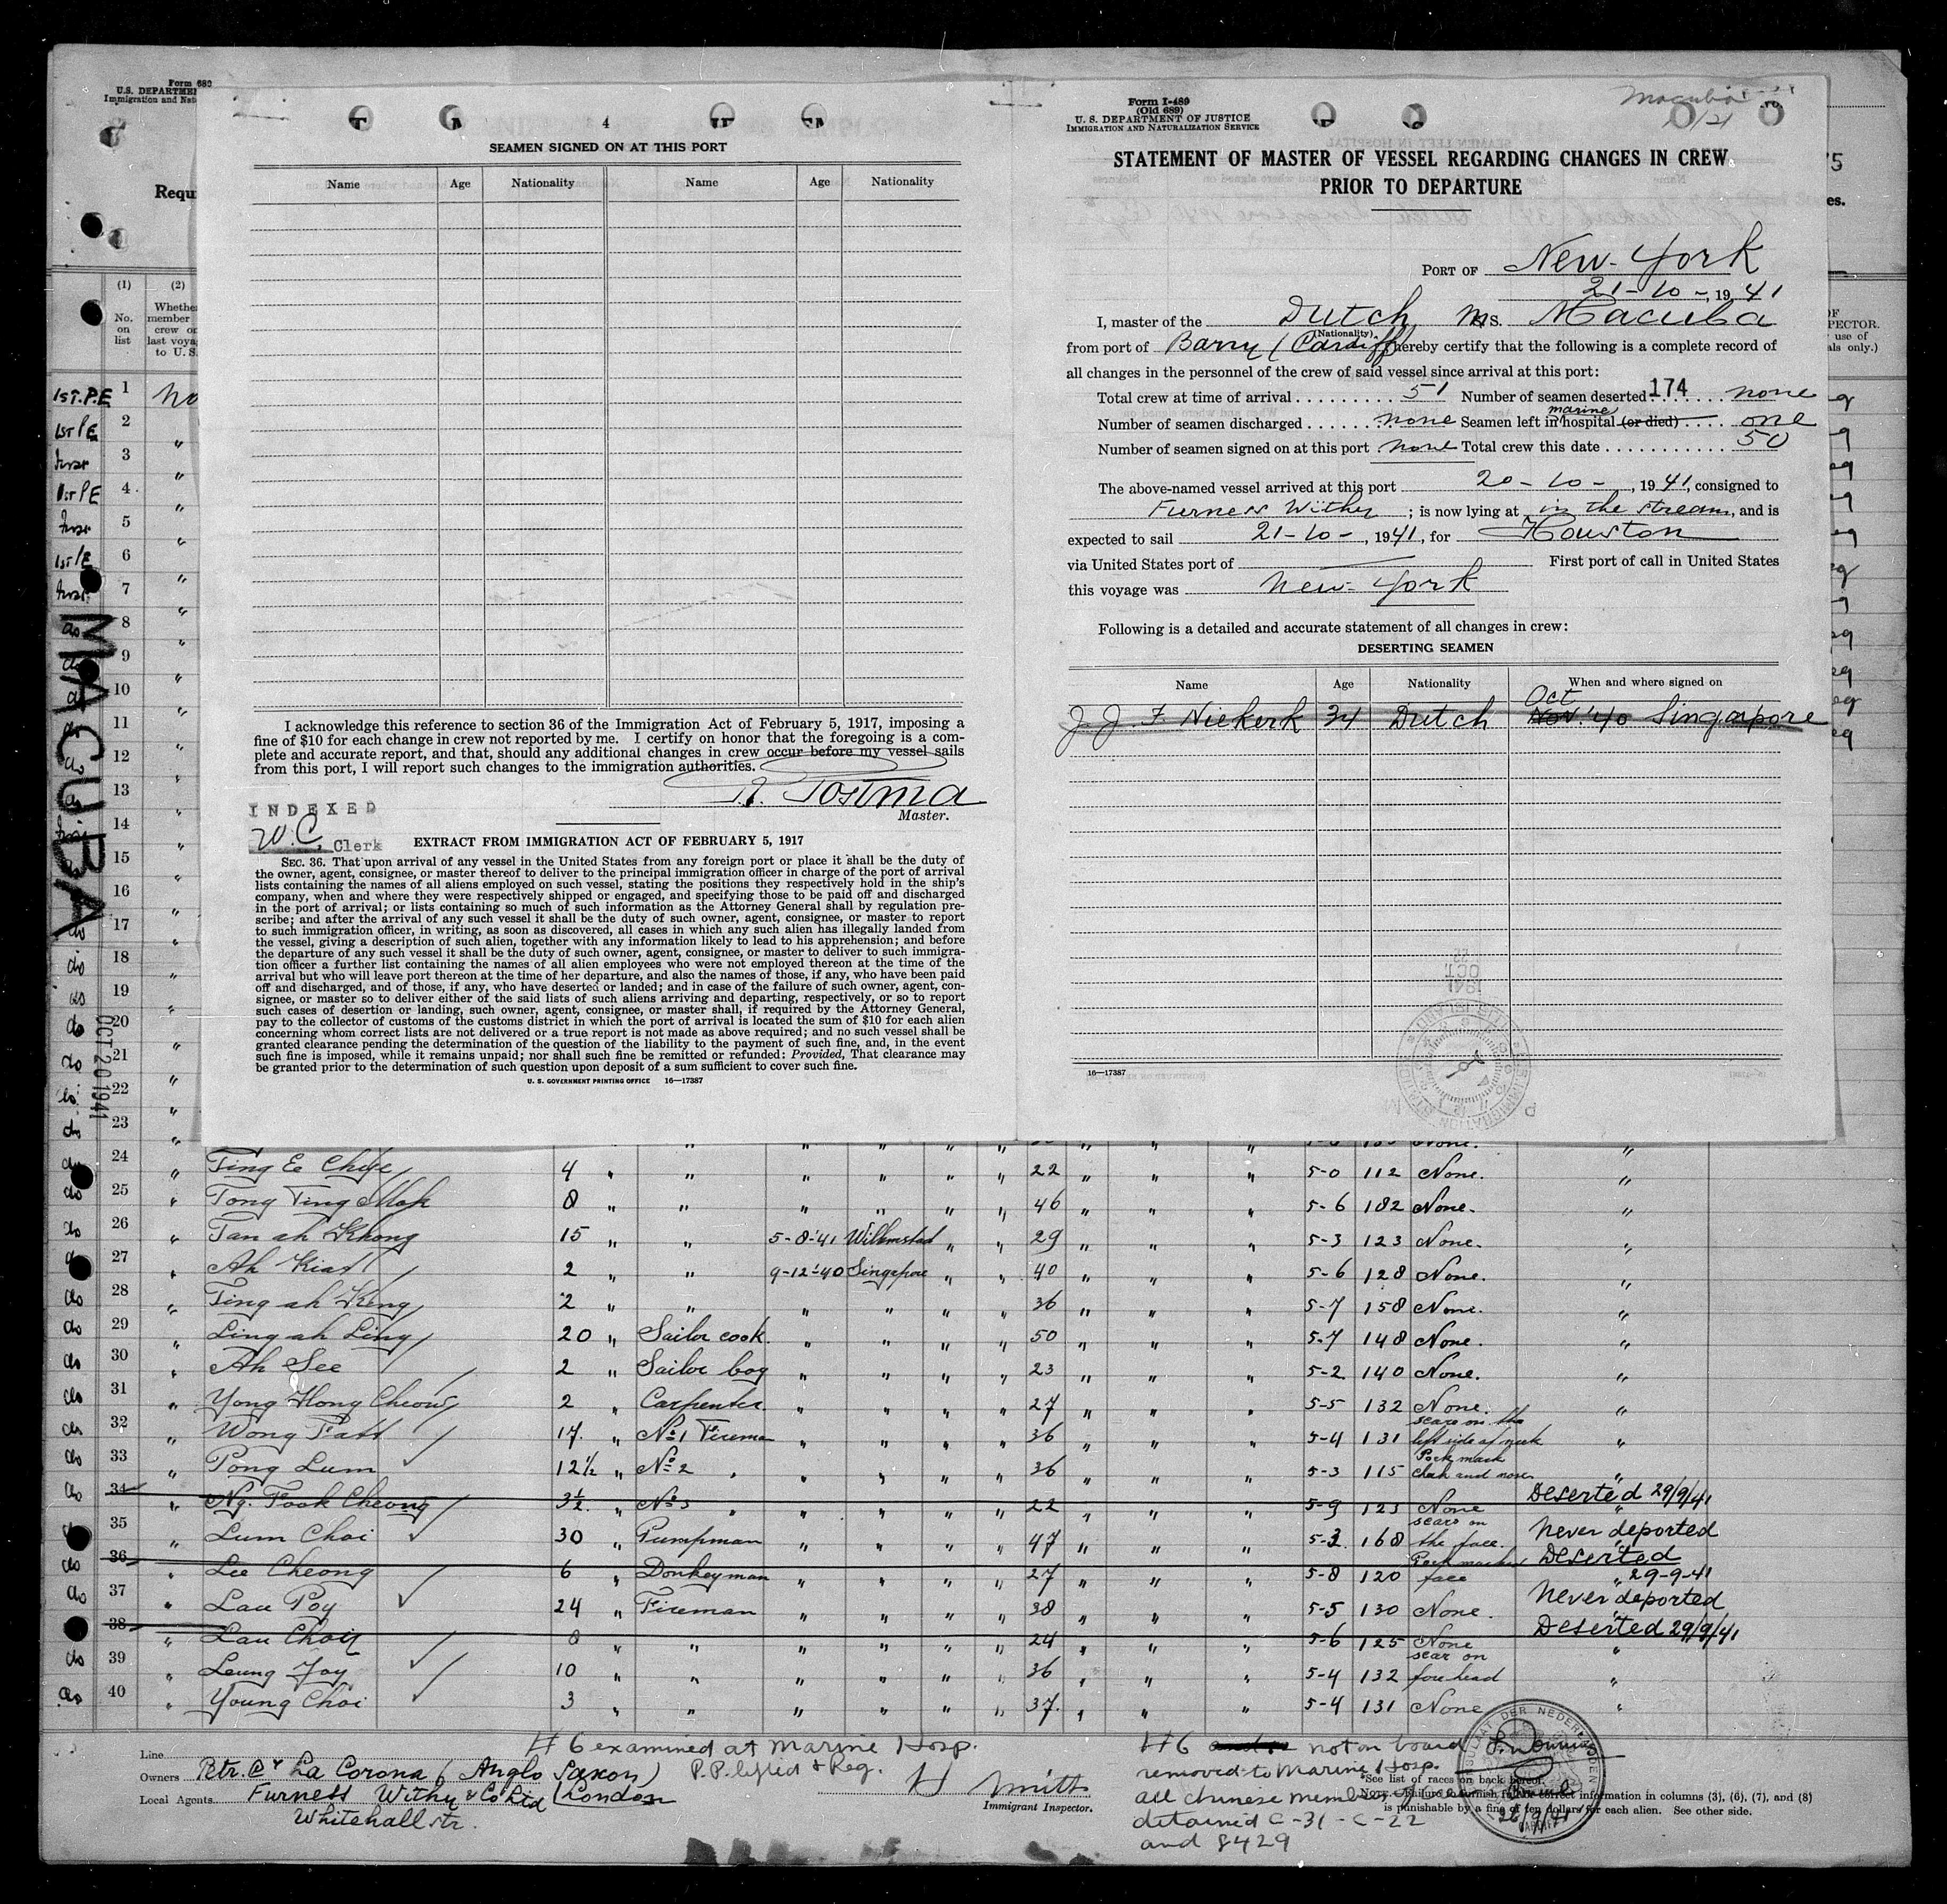 Form 680
U.S. DEPARTME
Immigration and Nat
Requ
(1) (2)
No. on list
Whether member crew on last voya to U.S.
MACUBA
OCT 20 1941
4
SEAMEN SIGNED ON AT THIS PORT
Name Age Nationality Name Age Nationality
I acknowledge this reference to section 36 of the Immigration Act of February 5, 1917, imposing a
fine of $10 for each change in crew not reported by me. I certify on honor that the foregoing is a com-
plete and accurate report, and that, should any additional changes in crew occur before my vessel sails
from this port, I will report such changes to the immigration authorities.
Postma
Master.
INDEXED
W.C. Clerk
EXTRACT FROM IMMIGRATION ACT OF FEBRUARY 5, 1917
SEC. 36. That upon arrival of any vessel in the United States from any foreign port or place it shall be the duty of
the owner, agent, consignee, or master thereof to deliver to the principal immigration officer in charge of the port of arrival
lists containing the names of all aliens employed on such vessel, stating the positions they respectively hold in the ship's
company, when and where they were respectively shipped or engaged, and specifying those to be paid off and discharged
in the port of arrival; or lists containing so much of such information as the Attorney General shall by regulation pre-
scribe; and after the arrival of any such vessel it shall be the duty of such owner, agent, consignee, or master to report
to such immigration officer, in writing, as soon as discovered, all cases in which any such alien has illegally landed from
the vessel, giving a description of such alien, together with any information likely to lead to his apprehension; and before
the departure of any such vessel it shall be the duty of such owner, agent, consignee, or master to deliver to such immigra-
tion officer a further list containing the names of all alien employees who were not employed thereon at the time of the
arrival but who will leave port thereon at the time of her departure, and also the names of those, if any, who have been paid
off and discharged, and of those, if any, who have deserted or landed; and in case of the failure of such owner, agent, con-
signee, or master so to deliver either of the said lists of such aliens arriving and departing, respectively, or so to report
such cases of desertion or landing, such owner, agent, consignee, or master shall, if required by the Attorney General,
pay to the collector of customs of the customs district in which the port of arrival is located the sum of $10 for each alien
concerning whom correct lists are not delivered or a true report is not made as above required; and no such vessel shall be
granted clearance pending the determination of the question of the liability to the payment of such fine, and, in the event
such fine is imposed, while it remains unpaid; nor shall such fine be remitted or refunded: Provided, That clearance may
be granted prior to the determination of such question upon deposit of a sum sufficient to cover such fine.
U. S. GOVERNMENT PRINTING OFFICE 16—17387
Form I-489
(Old 689)
U. S. DEPARTMENT OF JUSTICE
IMMIGRATION AND NATURALIZATION SERVICE
Macuba
STATEMENT OF MASTER OF VESSEL REGARDING CHANGES IN CREW
PRIOR TO DEPARTURE
PORT OF New-York
21-10-, 1941
I, master of the Dutch Ms. Macuba
(Nationality)
from port of Barry (Cardiff) hereby certify that the following is a complete record of
all changes in the personnel of the crew of said vessel since arrival at this port:
174
Total crew at time of arrival 51 Number of seamen deserted none
Number of seamen discharged none Seamen left in marine hospital (or died) one
Number of seamen signed on at this port none Total crew this date 50
The above-named vessel arrived at this port 20-10-, 1941, consigned to
Furness Withy; is now lying at in the stream, and is
expected to sail 21-10-, 1941, for Houston
via United States port of First port of call in United States
this voyage was New-York
Following is a detailed and accurate statement of all changes in crew:
DESERTING SEAMEN
Name Age Nationality When and where signed on
J. J. F. Niekerk 34 Dutch Oct Nov. '40 Singapore
16—17387
24 Ting Ee Chije 4 " " " " " " 22 " " " 5-0 112 None. "
25 Tong Ting Mok 8 " " " " " " 46 " " " 5-6 182 None. "
26 Tan ah Khong 15 " " 5-8-'41 Willemstad " " 29 " " " 5-3 123 None. "
27 Ah Kiat 2 " " 9-12-'40 Singapore " " 40 " " " 5-6 128 None. "
28 Ting ah Keng 2 " " " " " " 36 " " " 5-7 158 None. "
29 Ling ah Ling 20 " Sailor cook. " " " " 50 " " " 5-7 148 None. "
30 Ah See 2 " Sailor boy " " " " 23 " " " 5-2 140 None. "
31 Yong Hong Cheong 2 " Carpenter " " " " 27 " " " 5-5 132 None. "
32 Wong Fatt 17. " No 1 Fireman " " " " 36 " " " 5-4 131 scars on the left side of neck "
33 Pong Lum 12½ " No 2 " " " " " 36 " " " 5-3 115 Pock mark cheek and nose "
34 Ng. Fook Cheong 3½ " No 3 " " " " " 22 " " " 5-9 123 None Deserted 29/9/41
35 Lum Choi 30 " Pumpman " " " " 47 " " " 5-3 168 scars on the face. Never deported
36 Lee Cheong 6 " Donkeyman " " " " 27 " " " 5-8 120 Pock marks face Deserted 29-9-41
37 Lau Poy 24 " Fireman " " " " 38 " " " 5-5 130 None. Never deported
38 Lau Choy 8 " " " " " " 24 " " " 5-6 125 None Deserted 29/9/41
39 Leung Joy 10 " " " " " " 36 " " " 5-4 132 scar on forehead "
40 Young Choi 3 " " " " " " 37. " " " 5-4 131 None "
Line
Owners Petr. Cy La Corona (Anglo Saxon)
Local Agents Furness Withy & Co Ltd (London
Whitehall str.
# 6 examined at Marine Hosp.
P.P. lifted & Reg.
H Smith
Immigrant Inspector.
# 6 not on board
removed to Marine Hosp.
all chinese members of crew
detained C-31-C-22
and 8429
*See list of races on back hereof.
NOTE.—Failure to furnish full or correct information in columns (3), (6), (7), and (8)
is punishable by a fine of ten dollars for each alien. See other side.
26/9/41